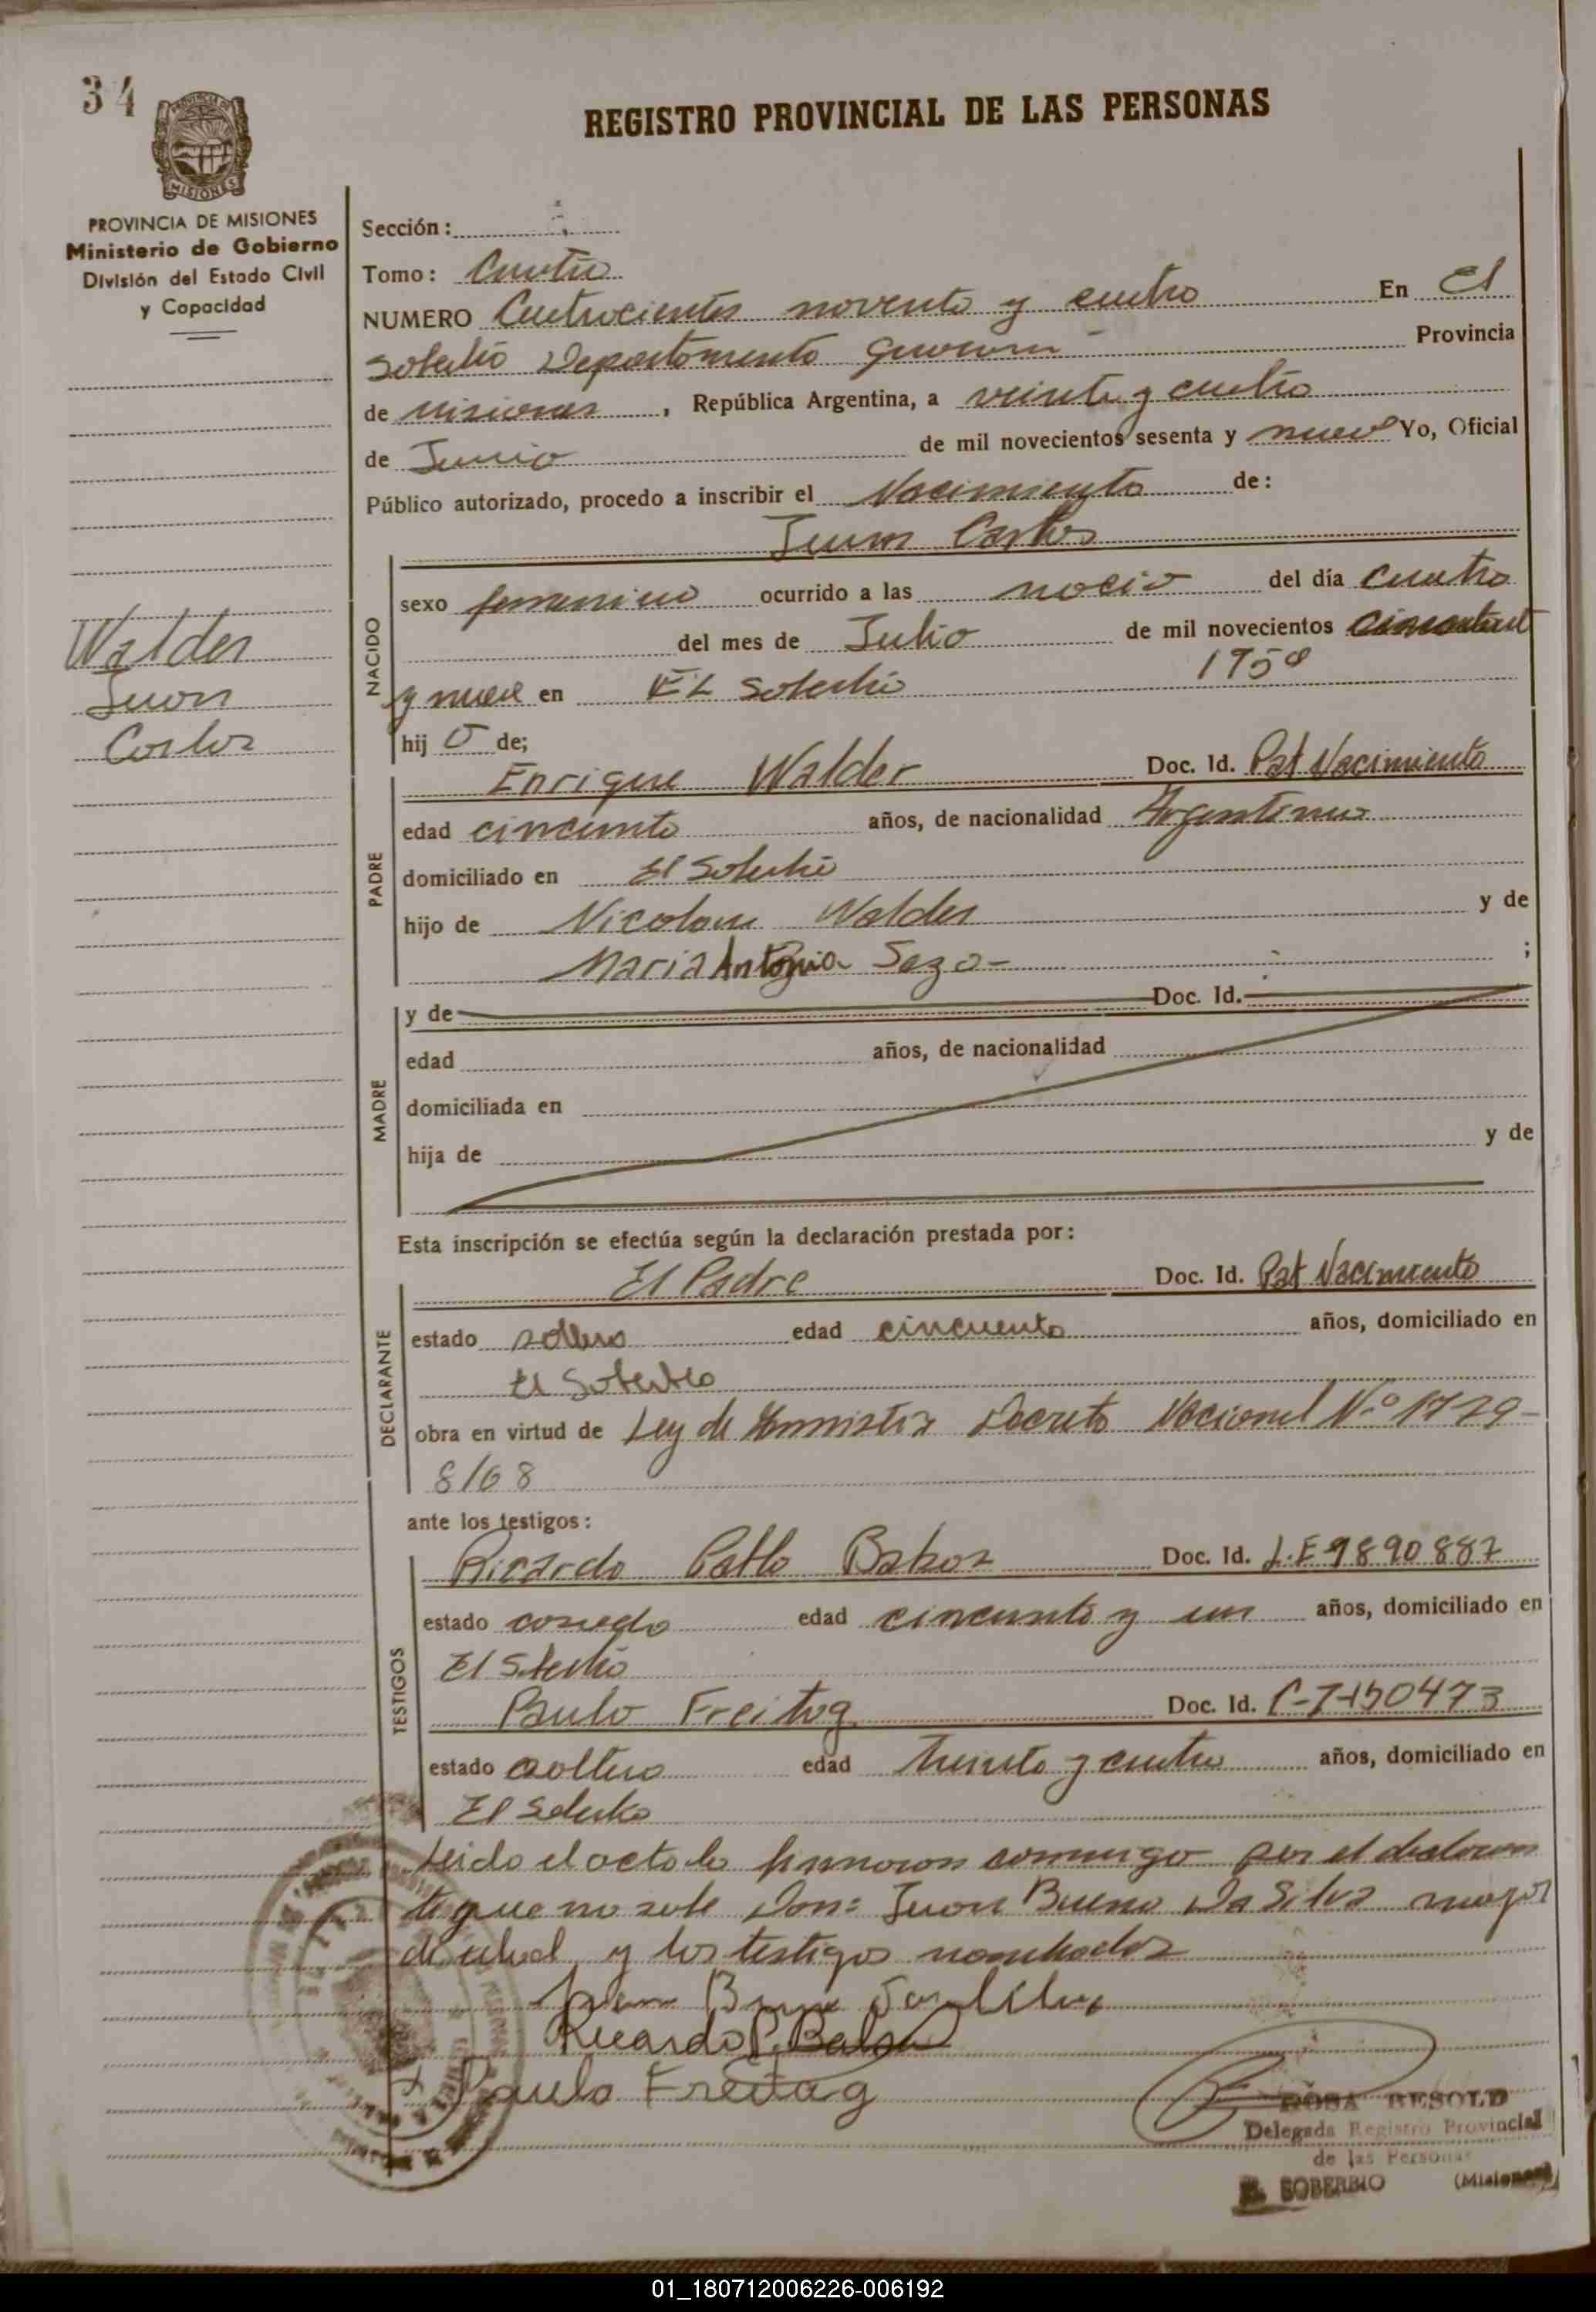 34
REGISTRO PROVINCIAL DE LAS PERSONAS
PROVINCIA DE MISIONES
Ministerio de Gobierno
División del Estado Civil
y Capacidad
Sección:
Tomo: Cuatro
NUMERO Cuatrocientos noventa y cuatro En El
Soberbio Departamento Guarani Provincia
de Misiones, República Argentina, a veinte y cuatro
de Junio de mil novecientos sesenta y nueve Yo, Oficial
Público autorizado, procedo a inscribir el Nacimiento de:
Juan Carlos
NACIDO
sexo femenino ocurrido a las nocio del día cuatro
del mes de Julio de mil novecientos cincuenta
1959
y nueve en EL Soberbio
hij o de;
Walder
Juan
Carlos
PADRE
Enrique Walder Doc. Id. Pat Nacimiento
edad cincuenta años, de nacionalidad Argentino
domiciliado en El Soberbio
hijo de Nicolau Walder y de
Maria Antonia Sozo ;
MADRE
y de Doc. Id.
edad años, de nacionalidad
domiciliada en
hija de y de
Esta inscripción se efectúa según la declaración prestada por:
DECLARANTE
El Padre Doc. Id. Pat Nacimiento
estado soltero edad cincuenta años, domiciliado en
El Soberbio
obra en virtud de Ley de Amnistia Decreto Nacional Nº 1729-
8/68
ante los testigos:
TESTIGOS
Ricardo Pablo Doc. Id. L.E 9890887
estado casado edad cincuenta y un años, domiciliado en
El Soberbio
Paulo Freitag Doc. Id. C-7-150473
estado soltero edad treinta y cuatro años, domiciliado en
El Soberbio
Leido el acta la firmaron conmigo por el declaran
te que no sabe Don: Juan Bueno Da Silva mayor
de edad y los testigos nombrados
Ricardo P.
Paulo Freitag
ROSA BESOLD
Delegada Registro Provincial
de las Personas
EL SOBERBIO (Misiones)
01_180712006226-006192